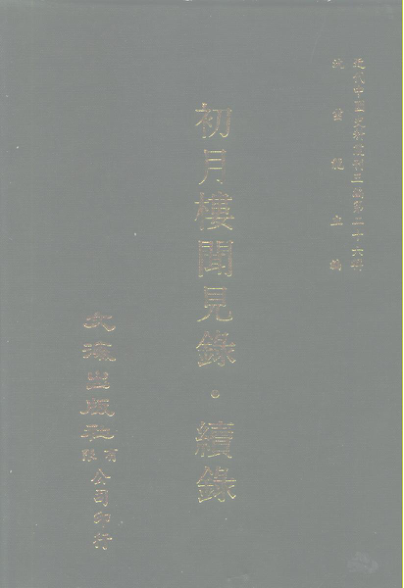 近代中國史料叢刊三編第二十六輯
沈雲龍主編
初月樓聞見錄・續錄
文海出版社有限公司印行